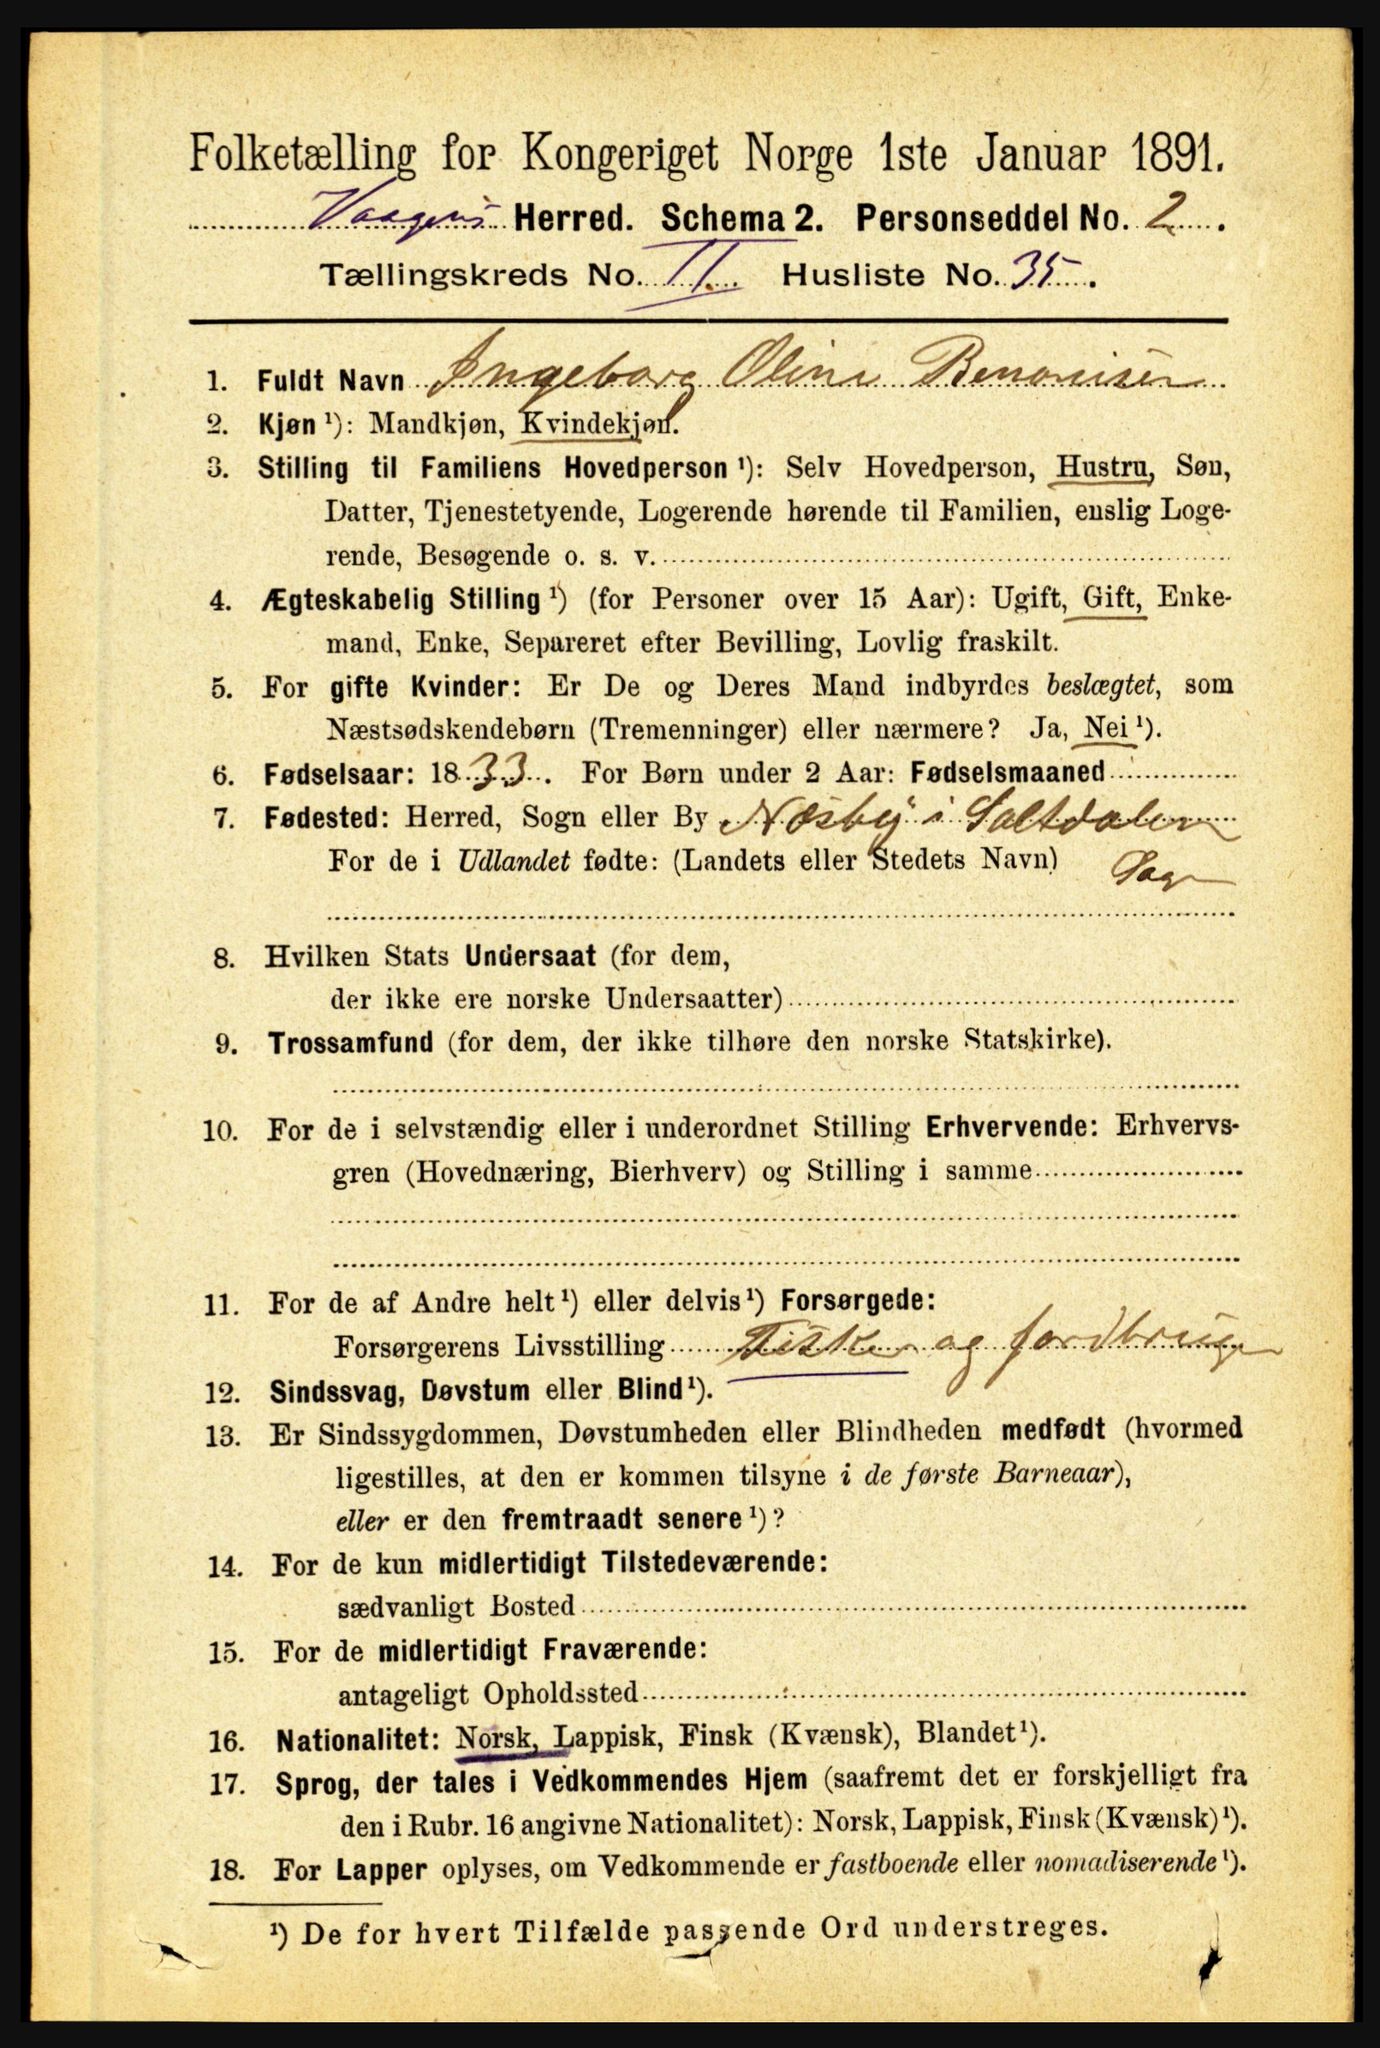 Folketælling for Kongeriget Norge 1ste Januar 1891.
Vaagens Herred. Schema 2. Personseddel No. 2.
Tællingskreds No. II. Husliste No. 35.
1. Fuldt Navn Ingeborg Oline Benonisen
2. Kjøn ¹): Mandkjøn, Kvindekjøn.
3. Stilling til Familiens Hovedperson ¹): Selv Hovedperson, Hustru, Søn,
Datter, Tjenestetyende, Logerende hørende til Familien, enslig Loge-
rende, Besøgende o. s. v.
4. Ægteskabelig Stilling ¹) (for Personer over 15 Aar): Ugift, Gift, Enke-
mand, Enke, Separeret efter Bevilling, Lovlig fraskilt.
5. For gifte Kvinder: Er De og Deres Mand indbyrdes beslægtet, som
Næstsødskendebørn (Tremenninger) eller nærmere? Ja, Nei ¹).
6. Fødselsaar: 1833. For Børn under 2 Aar: Fødselsmaaned
7. Fødested: Herred, Sogn eller By Næsby i Saltdalen
For de i Udlandet fødte: (Landets eller Stedets Navn)
8. Hvilken Stats Undersaat (for dem,
der ikke ere norske Undersaatter)
9. Trossamfund (for dem, der ikke tilhøre den norske Statskirke).
10. For de i selvstændig eller i underordnet Stilling Erhvervende: Erhvervs-
gren (Hovednæring, Bierhverv) og Stilling i samme
11. For de af Andre helt ¹) eller delvis ¹) Forsørgede:
Forsørgerens Livsstilling Fisker og Jordbruger
12. Sindssvag, Døvstum eller Blind ¹).
13. Er Sindssygdommen, Døvstumheden eller Blindheden medfødt (hvormed
ligestilles, at den er kommen tilsyne i de første Barneaar),
eller er den fremtraadt senere ¹)?
14. For de kun midlertidigt Tilstedeværende:
sædvanligt Bosted
15. For de midlertidigt Fraværende:
antageligt Opholdssted
16. Nationalitet: Norsk, Lappisk, Finsk (Kvænsk), Blandet ¹).
17. Sprog, der tales i Vedkommendes Hjem (saafremt det er forskjelligt fra
den i Rubr. 16 angivne Nationalitet): Norsk, Lappisk, Finsk (Kvænsk) ¹).
18. For Lapper oplyses, om Vedkommende er fastboende eller nomadiserende ¹).
¹) De for hvert Tilfælde passende Ord understreges.